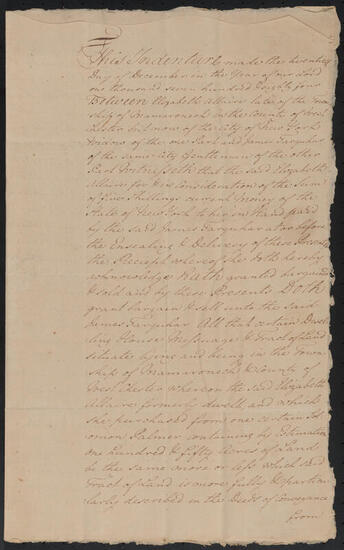 This Indenture made the twentieth
Day of December in the Year of our Lord
one thousand seven hundred Eighty four
Between Elizabeth Allaire late of the Town
ship of Mamaroneck in the County of West
Chester but now of the City of New York
of the one Part and James Farquhar
of the same City Gentleman of the other
Part Witnesseth that the said Elizabeth
Allaire for & in Consideration of the Sum
of five Shillings current Money of the
State of New York to her in Hand paid
by the said James Farquhar at or before
the Ensealing & Delivery of these Presents
the Receipt whereof she doth hereby
acknowledge Hath granted bargained
& sold and by these Presents Doth
grant bargain & sell unto the said
James Farquhar All that certain Dwel
ling House Messuage & Tract of Land
situate lying and being in the Town
ship of Mamaroneck & County of
West Chester whereon the said Elizabeth
Allaire formerly dwelt and which
she purchased from one certain Sol
omon Palmer containing by Estimation
one Hundred & fifty Acres of Land
be the same more or less which said
Tract of Land is more fully & particu
larly described in the Deeds of Conveyance
from